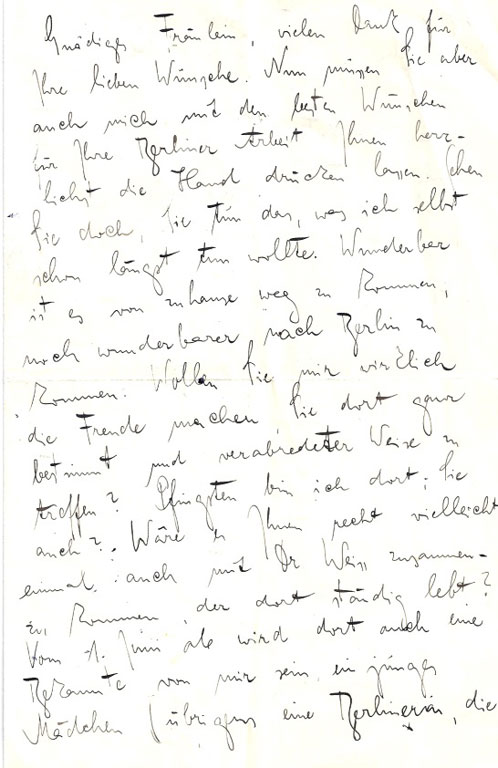 Gnädiges Fräulein, vielen Dank für
Ihre lieben Wünsche. Nun müssen Sie aber
auch mich mit den besten Wünschen
für Ihre Berliner Arbeit Ihnen herz-
lichst die Hand drücken lassen. Sehen
Sie doch, Sie tun das, was ich selbst
schon längst tun wollte. Wunderbar
ist es von zuhause weg zu kommen,
noch wunderbarer nach Berlin zu
kommen. Wollen Sie mir wirklich
die Freude machen, Sie dort ganz
bestimmt und verabredeter Weise zu
treffen? Pfingsten bin ich dort; Sie
auch? Wäre es Ihnen recht vielleicht
einmal auch mit Dr Weiss zusammen-
zu kommen, der dort ständig lebt?
Vom 1. Juni ab wird dort auch eine
Bekannte von mir sein, ein junges
Mädchen (übrigens eine Berlinerin, die